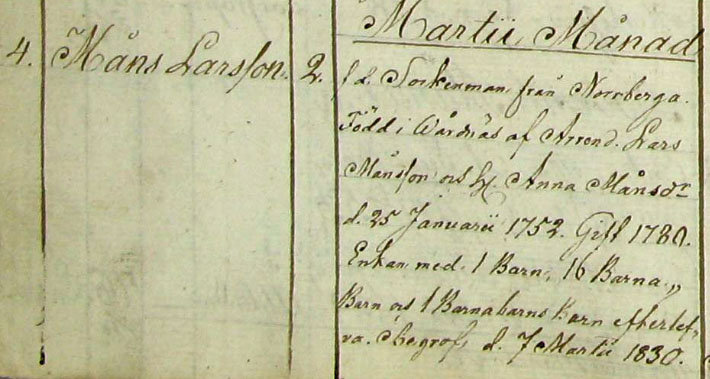 Martii Månad
4. Måns Larsson. 2. f.d. Sockenman från Norrberga.
Född i Wårdnäs af Arrend. Lars
Månsson och H. Anna Månsdr
d. 25 Januarii 1752. Gift 1780.
Enkan med 1 Barn, 16 Barna„
Barn och 1 Barnabarns Barn efterlef„
va. Begrofs d. 7 Martii 1830.